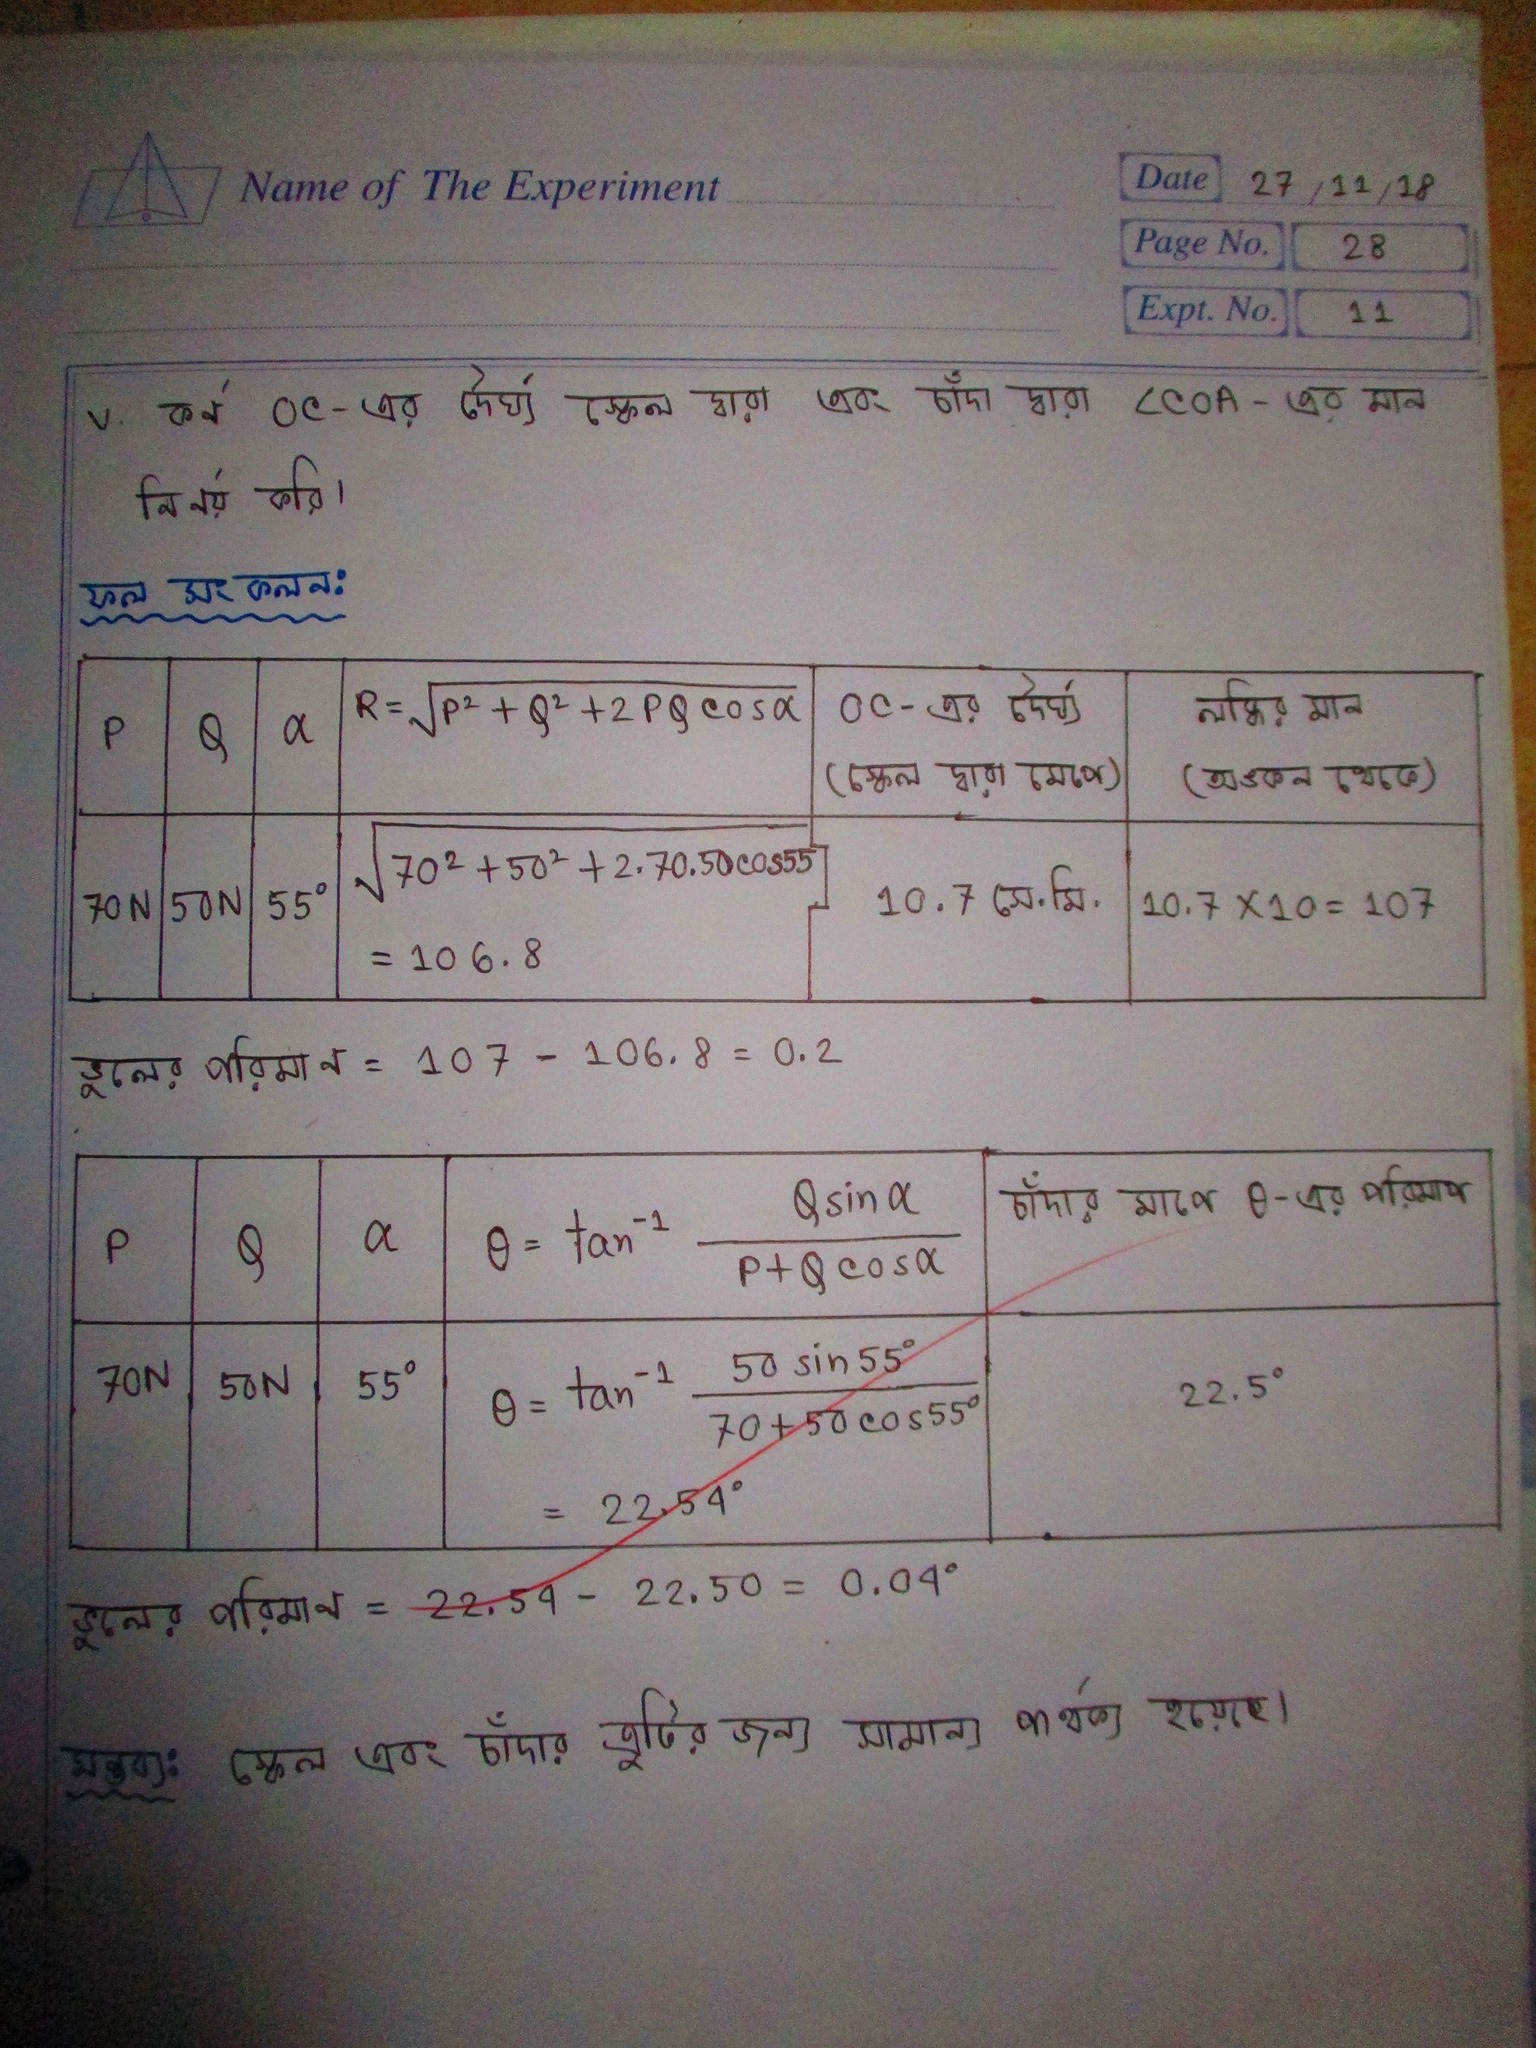 Name of The Experiment
Date 27/11/18
Page No. 28
Expt. No. 11
v. কর্ন OC-এর দৈর্ঘ্য স্কেল দ্বারা এবং চাঁদা দ্বারা ∠COA-এর মান
নির্নয় করি।
ফল সংকলন:
P Q α R = √P² + Q² + 2PQ cosα OC-এর দৈর্ঘ্য (স্কেল দ্বারা মেপে) লব্ধির মান (অঙকন থেকে)
70N 50N 55° √70² + 50² + 2.70.50cos55 10.7 সে.মি. 10.7 X 10 = 107
= 106.8
ভুলের পরিমান = 107 - 106.8 = 0.2
P Q α θ = tan⁻¹ Q sinα / P+Q cosα চাঁদার মাপে θ-এর পরিমাপ
70N 50N 55° θ = tan⁻¹ 50 sin55° / 70+50cos55° 22.5°
= 22.54°
ভুলের পরিমান = 22.54 - 22.50 = 0.04°
মন্তব্য: স্কেল এবং চাঁদার ত্রুটির জন্য সামান্য পার্থক্য হয়েছে।